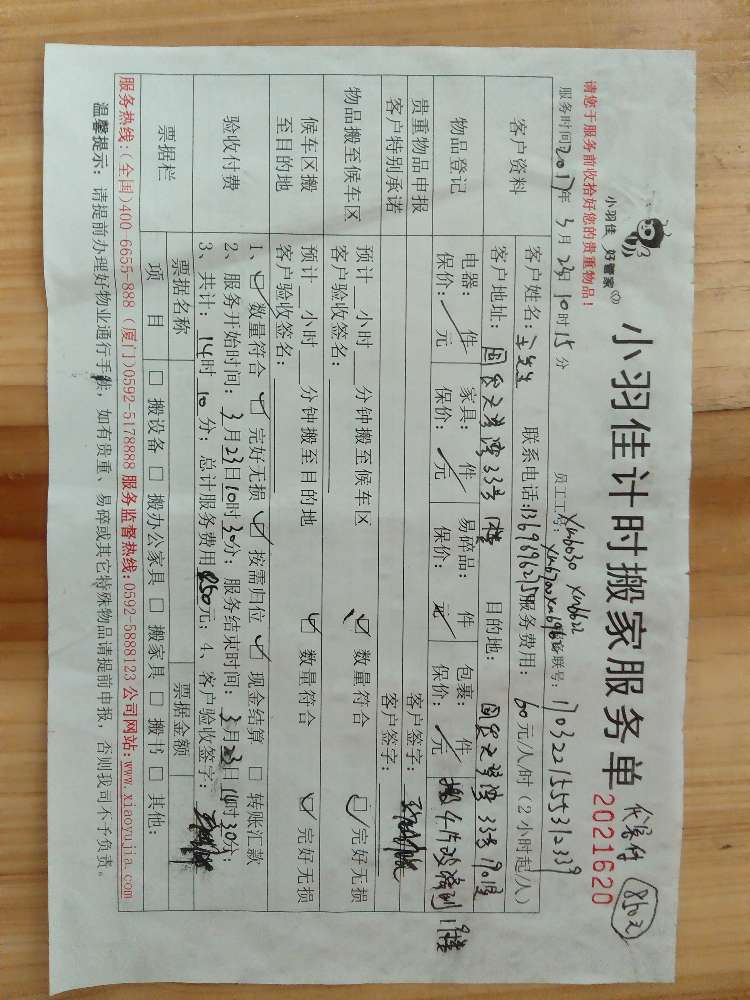 小羽佳 好管家
小羽佳计时搬家服务单
2021620
850元
请您于服务前收拾好您的贵重物品!
服务时间2017年3月23日10时15分
员工工号:
客联号:
客户资料
客户姓名:
联系电话:
服务费用: 60元/人/时(2小时起/人)
客户地址: 国贸天琴湾33号1楼
目的地: 国贸天琴湾33号
物品登记
电器: 件 家具: 件 易碎品: 件 包裹: 件
保价: 元 保价: 元 保价: 元 保价: 元
贵重物品申报
客户签字:
客户特别承诺
客户签字:
物品搬至候车区
预计 小时 分钟搬至候车区 ☑ 数量符合 ☑ 完好无损
客户验收签名:
候车区搬至目的地
预计 小时 分钟搬至目的地 ☑ 数量符合 ☑ 完好无损
客户验收签名:
验收付费
1、☑ 数量符合 ☑ 完好无损 ☑ 按需归位 ☑ 现金结算 □ 转账汇款
2、服务开始时间: 3月23日10时30分; 服务结束时间: 3月23日14时30分;
3、共计: 14时10分; 总计服务费用850元; 4、客户验收签字:
票据栏
票据名称
票据金额
项 目
□ 搬设备 □ 搬办公家具 □ 搬家具 □ 搬书 □ 其他:
服务热线:(全国)400-6655-888 (厦门)0592-5178888 服务监督热线:0592-5888123 公司网站:www.xiaoyujia.com
温馨提示: 请提前办理好物业通行手续, 如有贵重、易碎或其它特殊物品请提前申报, 否则我司不予负责。